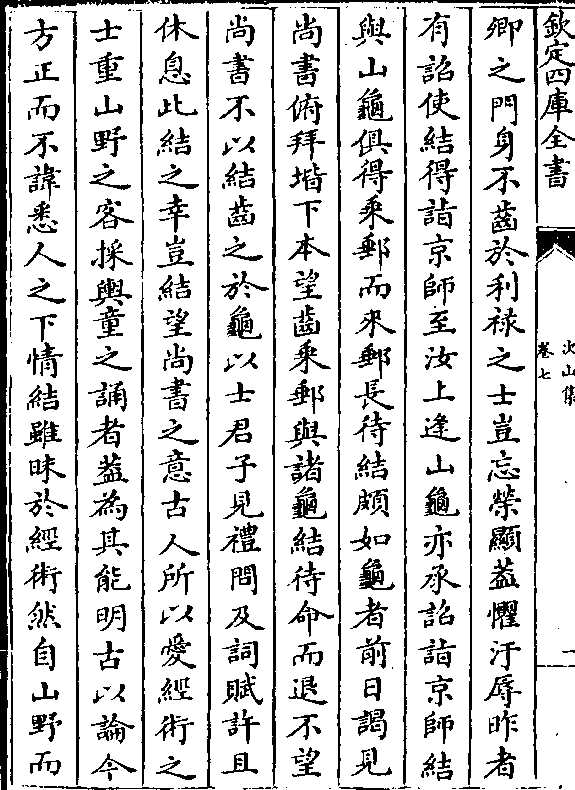 欽定四庫全書
次山集
卷七
一
卿之門身不齒於利祿之士豈忘榮顯葢懼汙辱昨者
有詔使結得詣京師至汝上逢山龜亦承詔詣京師結
與山龜俱得乘郵而來郵長待結頗如龜者前日謁見
尚書俯拜堦下本望齒乘郵與諸龜結待命而退不望
尚書不以結齒之於龜以士君子見禮問及詞賦許且
休息此結之幸豈結望尚書之意古人所以愛經術之
士重山野之客採輿童之誦者葢為其能明古以論今
方正而不諱悉人之下情結雖昧於經術然自山野而